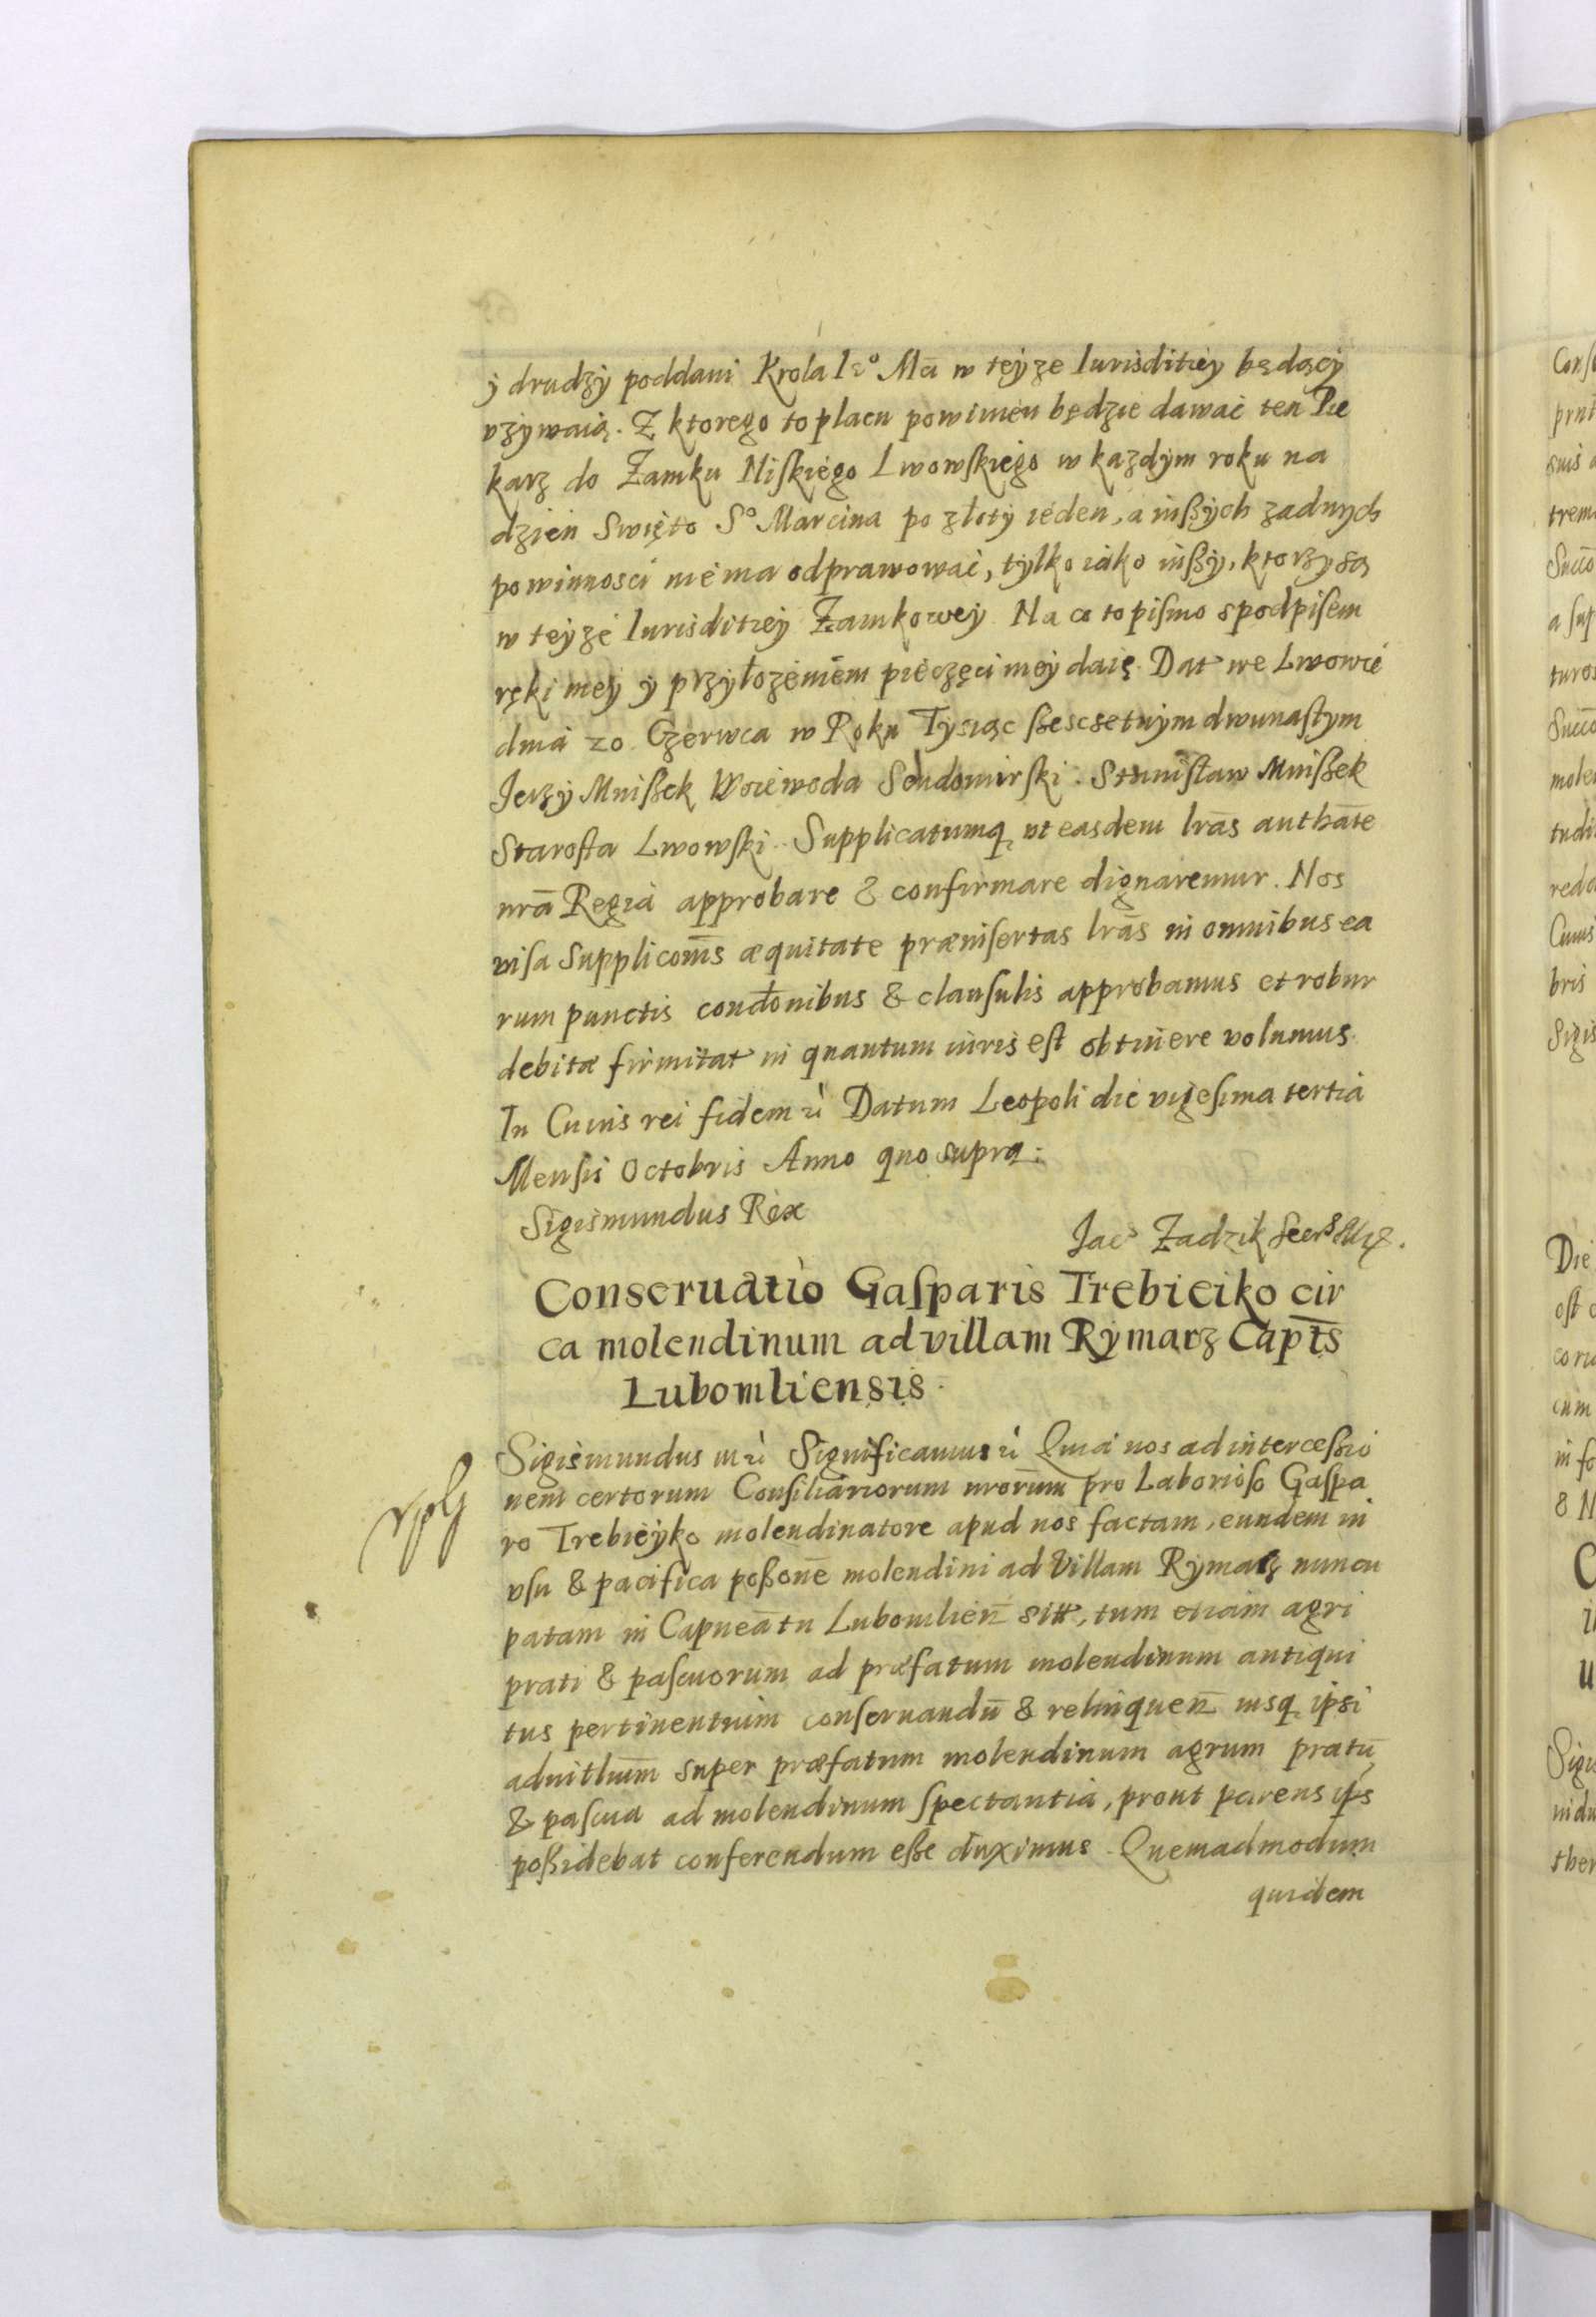 y drudzy poddani Krola Ie° Mći w teyze Iurisditiey będący
vzywaią. Z ktorego to placu powinien będzie dawać ten Pie
karz do Zamku Niskiego Lwowskiego w kazdym roku na
dzien Święto S° Marcina po złoty ieden, a inßych zadnych
powinnosci niema odprawować, tylko iako inßy, ktorzy są
w teyze Iurisditiey Zamkowey Na co to pismo spodpisem
ręki mey y przyłozeniem pieczęci mey daię. Dat we Lwowie
dnia 20 Czerwca w Roku Tysiąc ßescsetnym dwunastym
Jerzy Mnißek Woiewoda Sendomirski. Stanisław Mnißek
Starosta Lwowski. Supplicatumq₃ vt easdem lrās authāte
nrā Regia approbare & confirmare dignaremur. Nos
visa Supplicōnis æquitate præinsertas lrās in omnibus ea
rum punctis condōnibus & clausulis approbamus et robur
debitæ firmitat in quantum iuris est obtinere volumus.
In Cuius rei fidem ń Datum Leopoli die vigesima tertia
Mensis Octobris Anno quo supra.
Sigismundus Rex
Jacs Zadzik
Conseruatio Gasparis Trebieiko cir
ca molendinum ad villam Rymarz Capts̄
Lubomliensis.
Sigismundus Significamus Quia nos ad intercessio
nem certorum Consiliariorum nrorum̄ pro Laborioso Gaspa
ro Trebieyko molendinatore apud nos factam, eundem in
vsu & pacifica poßonē molendini ad Villam Rymarz nuncu
patam in Capneātu Lubomlien̄ sitt, tum etiam agri
prati & pascuorum ad præfatum molendinum antiqui
tus pertinentium conseruandū & relinquen̄ iusq₃ ipsi
aduitlium̄ super præfatum molendinum agrum pratū
& pascua ad molendinum spectantia, prout parens ips
poßidebat conferendum eße duximus. Quemadmodum
quidem